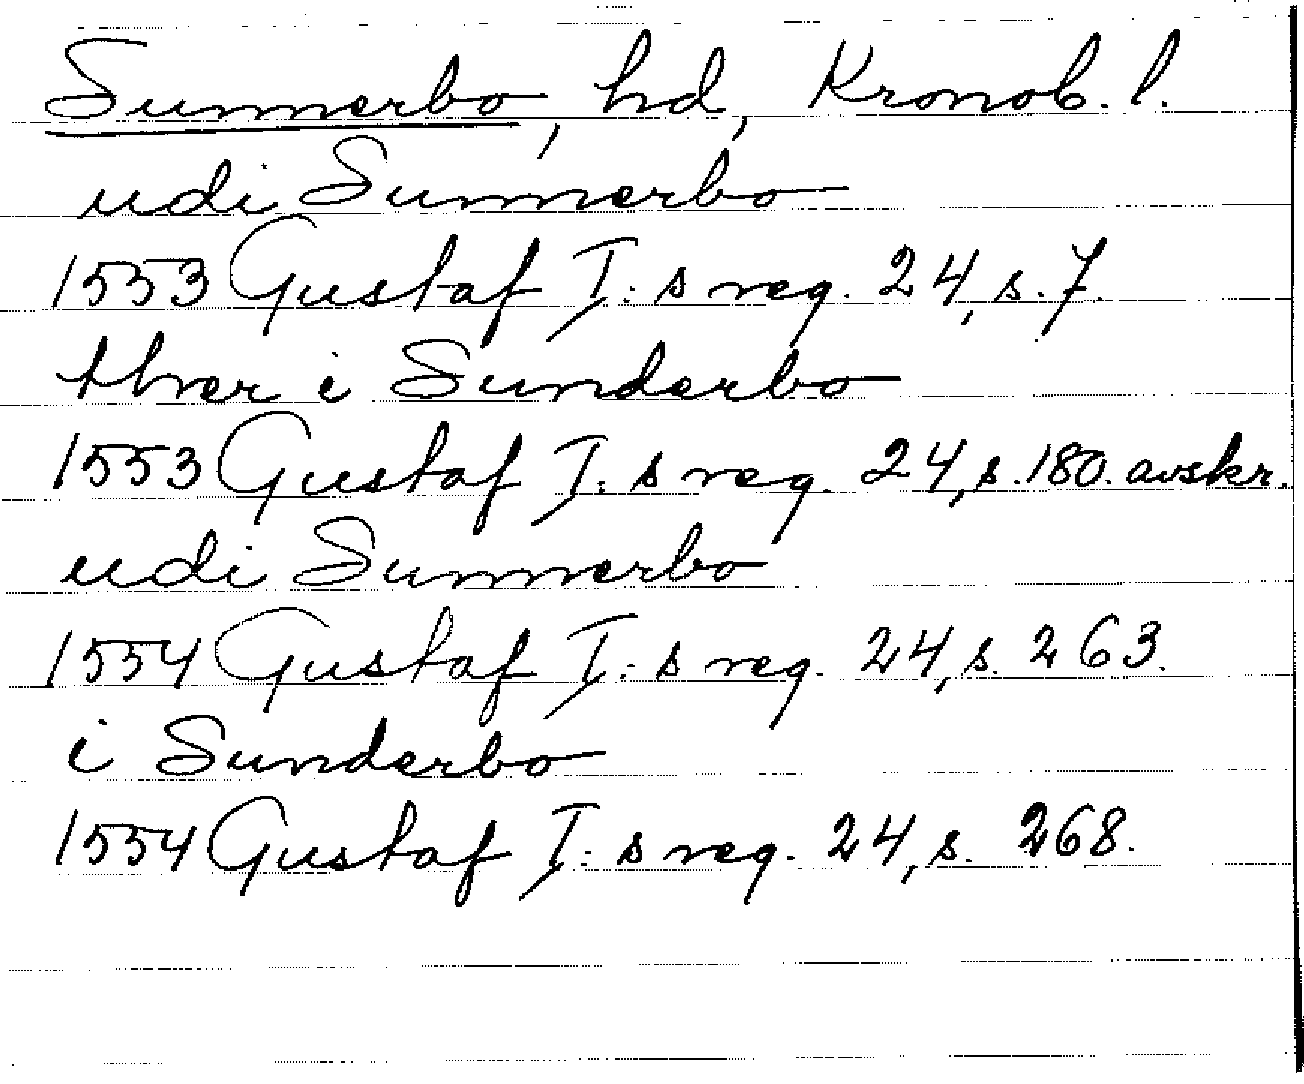 Sunnerbo, hd, Kronob. l.
udi Sunnerbo
1553 Gustaf I:s reg. 24, s. 7.
thver i Sunderbo
1553 Gustaf I:s reg. 24, s. 180. avskr.
udi Sunnerbo
1554 Gustaf I:s reg. 24, s. 263.
i Sunderbo
1554 Gustaf I:s reg. 24, s. 268.